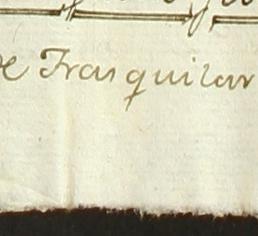 de Trasquilar